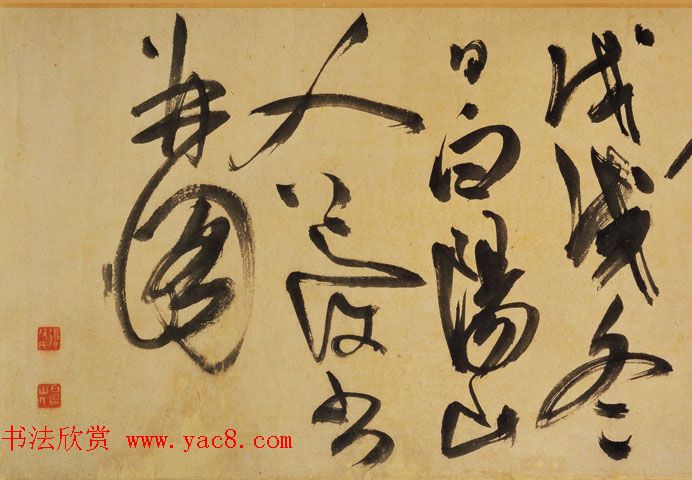 戊戌冬
日白陽山
人道復書
并圖
书法欣赏 www.yac8.com